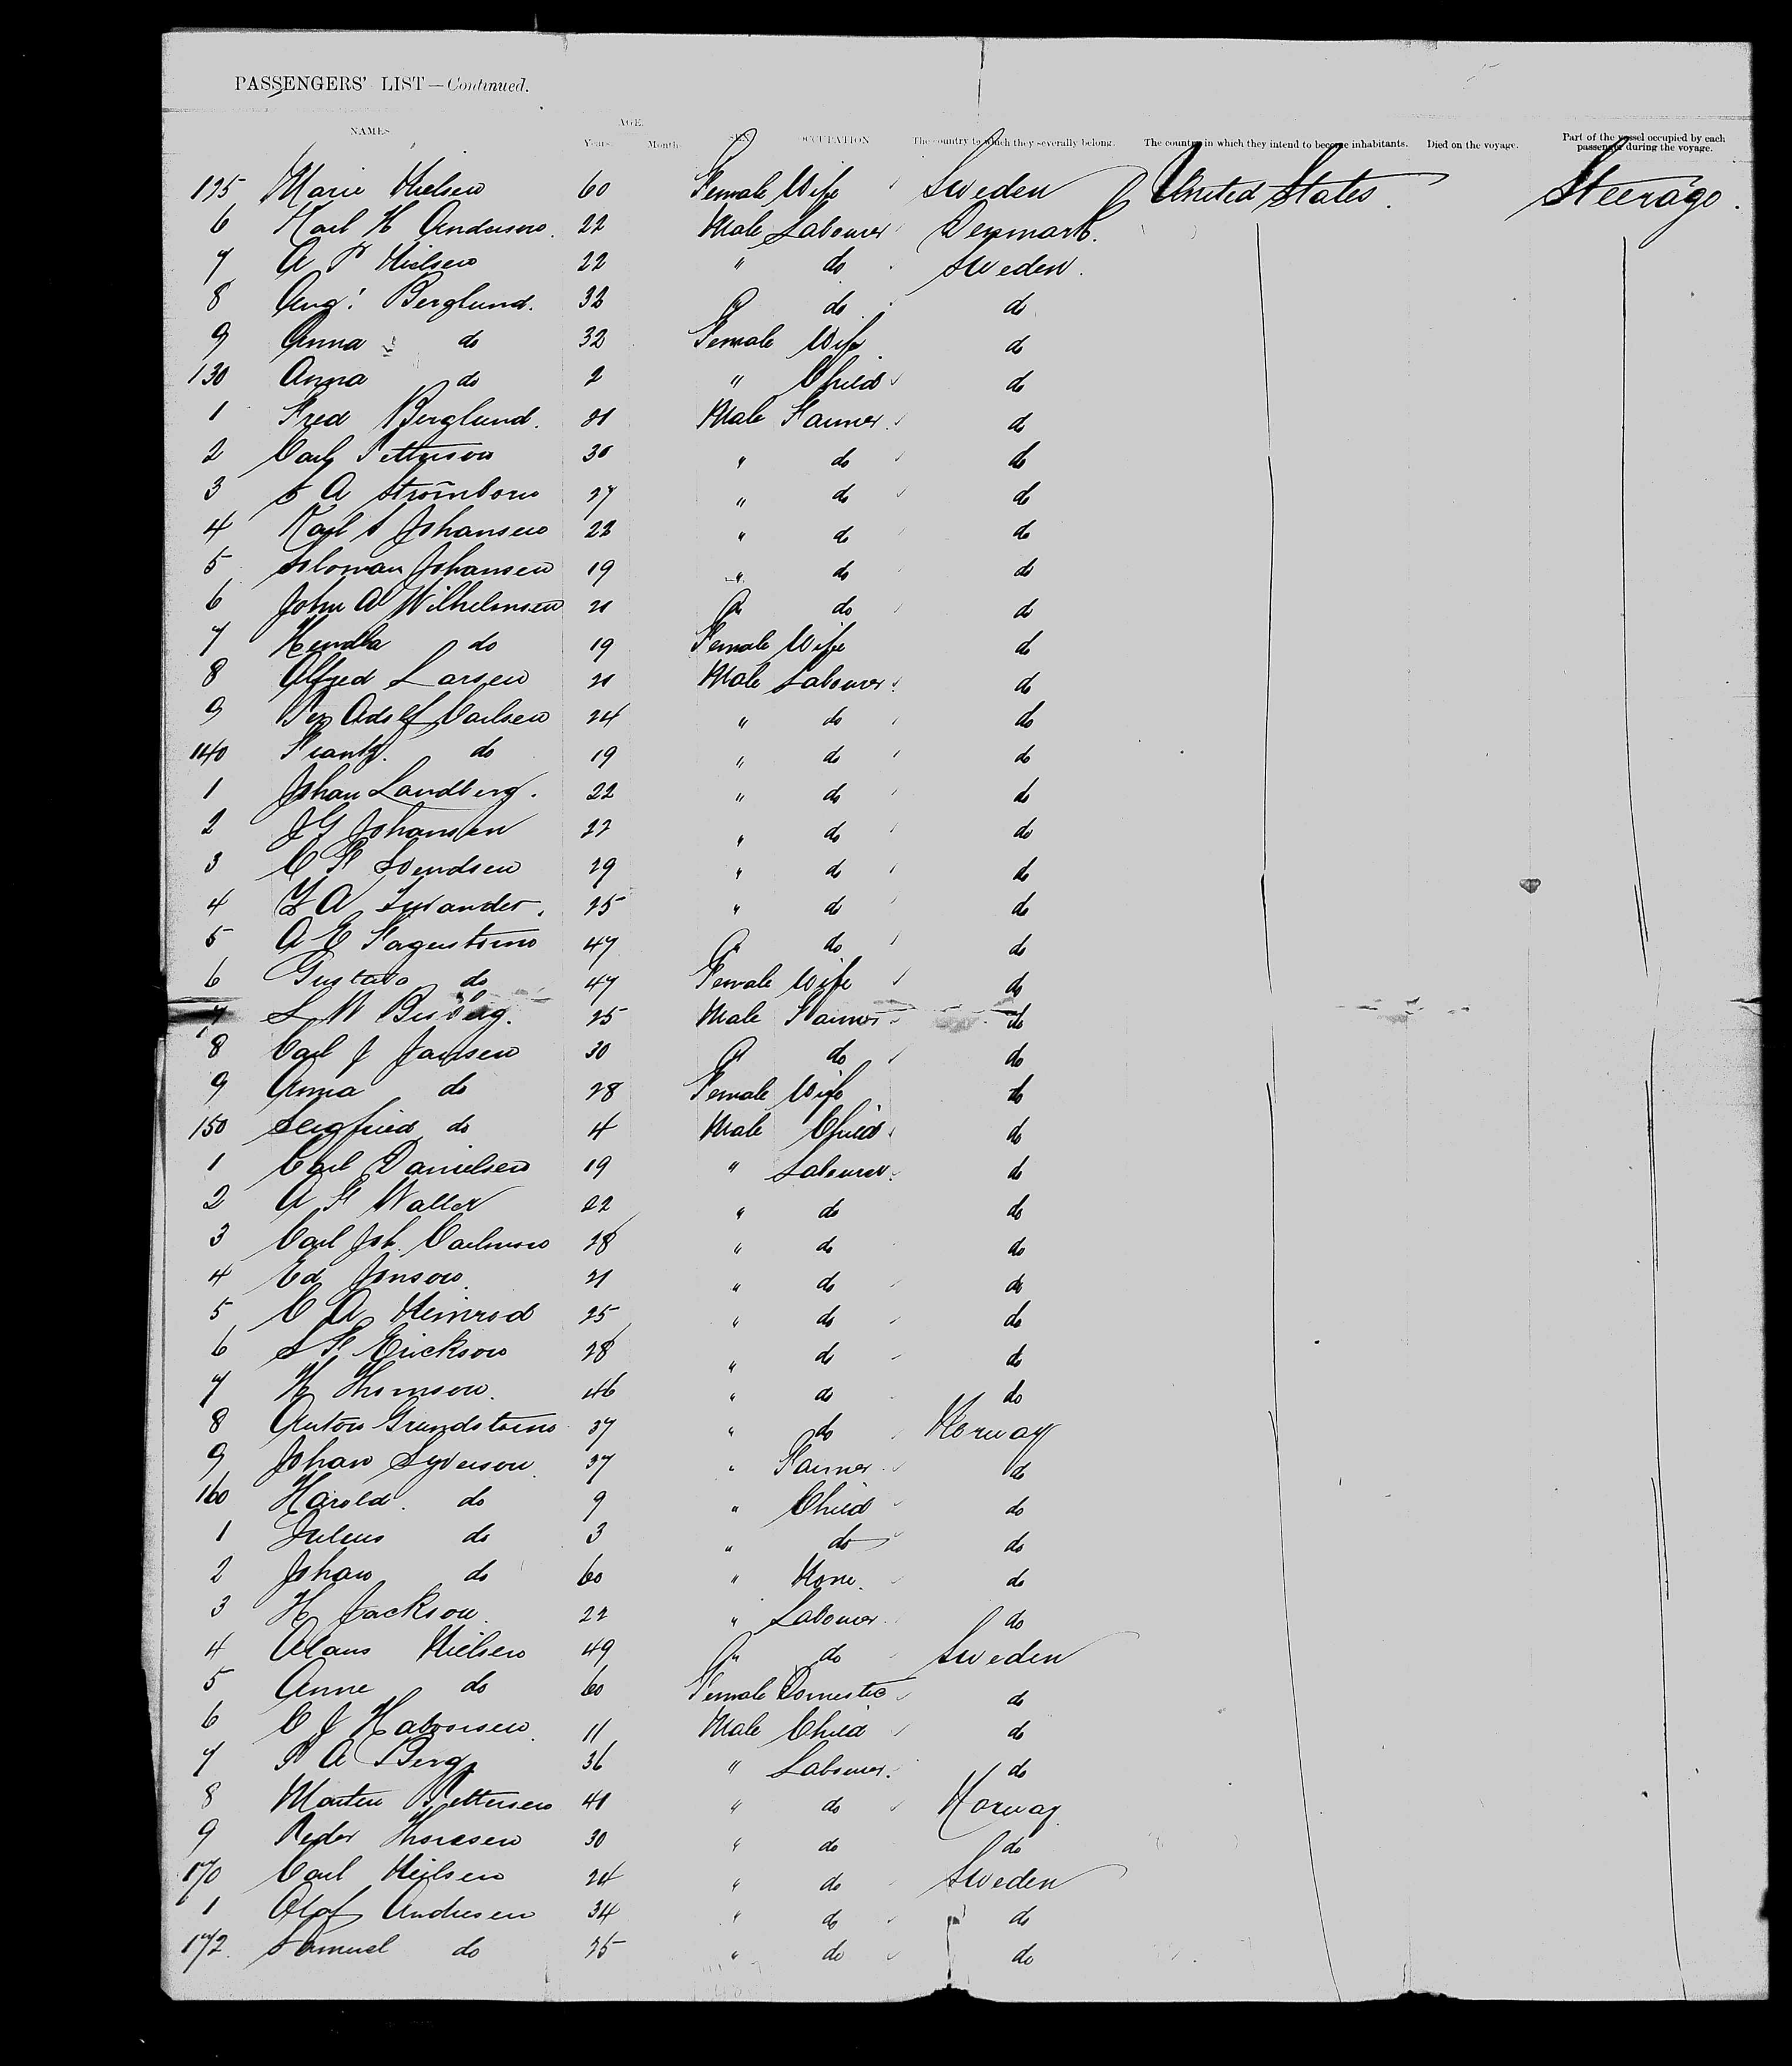 PASSENGERS' LIST—Continued.
NAMES AGE. Years. Month SEX OCCUPATION The country to which they severally belong. The country in which they intend to become inhabitants. Died on the voyage. Part of the vessel occupied by each passenger during the voyage.
125 Marie Nielsen 60 Female Wife Sweden United States. Steerage.
6 Karl H Anderson. 22 Male Labourer Denmark.
7 A P Nielsen 22 " do Sweden.
8 Aug: Berglund. 32 " do do
9 Anna do 32 Female Wife do
130 Anna do 2 " Child do
1 Fred Berglund. 21 Male Farmer do
2 Carl Petterson 30 " do do
3 A Strömbom 27 " do do
4 Karl S Johansen 22 " do do
5 Soloman Johansen 19 " do do
6 John A Wilhelmsen 21 " do do
7 Hendla do 19 Female Wife do
8 Alfred Larsen 21 Male Labourer do
9 Per Adolf Carlsen 24 " do do
140 Frantz. do 19 " do do
1 Johan Landberg. 22 " do do
2 J G Johansen 22 " do do
3 C F Svendsen 29 " do do
4 A 25 " do do
5 A E Fagerstrom 47 " do do
6 Gustava do 47 Female Wife do
7 S W 25 Male Farmer do
8 Carl J Jansen 30 " do do
9 Anna do 28 Female Wife do
150 Seigfried do 4 Male Child do
1 Carl Danielsen 19 " Labourer do
2 A F Waller 22 " do do
3 Carl Joh. Carlsson 28 " do do
4 Ed Jonson 21 " do do
5 C A Heinrod 25 " do do
6 S F Erickson 28 " do do
7 H Thomson. 46 " do do
8 Anton Grundstrom 37 " do Norway
9 Johan Syverson 37 " Farmer do
160 Harold. do 9 " Child do
1 Julius do 3 " do do
2 Johan do 60 " None. do
3 H Jackson. 22 " Labourer do
4 Nielsen 49 " do Sweden
5 Anne do 60 Female Domestic do
6 C J Halvorsen 11 Male Child do
7 P A Berg 36 " Labourer. do
8 Marten Pettersen 41 " do Norway.
9 Peder Thoresen 30 " do do
170 Carl Neilsen 24 " do Sweden
1 Olaf Andresen 34 " do do
172. Samuel do 25 " do do